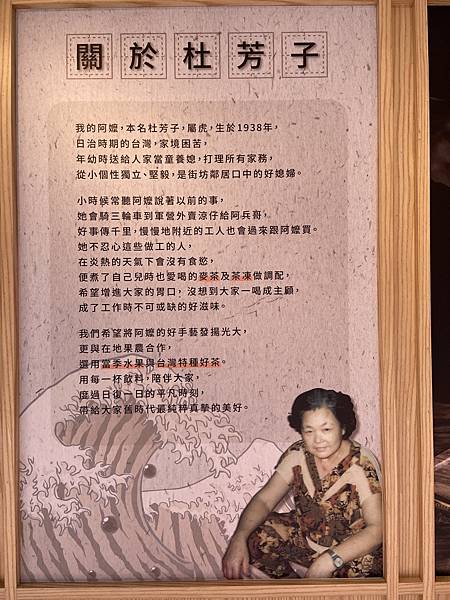 關於杜芳子
我的阿嬤，本名杜芳子，屬虎，生於1938年，
日治時期的台灣，家境困苦，
年幼時送給人家當童養媳，打理所有家務，
從小個性獨立、堅毅，是街坊鄰居口中的好媳婦。
小時候常聽阿嬤說著以前的事，
她會騎三輪車到軍營外賣涼仔給阿兵哥，
好事傳千里，慢慢地附近的工人也會過來跟阿嬤買。
她不忍心這些做工的人，
在炎熱的天氣下會沒有食慾，
便煮了自己兒時也愛喝的麥茶及茶凍做調配，
希望增進大家的胃口，沒想到大家一喝成主顧，
成了工作時不可或缺的好滋味。
我們希望將阿嬤的好手藝發揚光大，
更與在地果農合作，
選用當季水果與台灣特種好茶。
用每一杯飲料，陪伴大家，
度過日復一日的平凡時刻，
帶給大家舊時代最純粹真摯的美好。